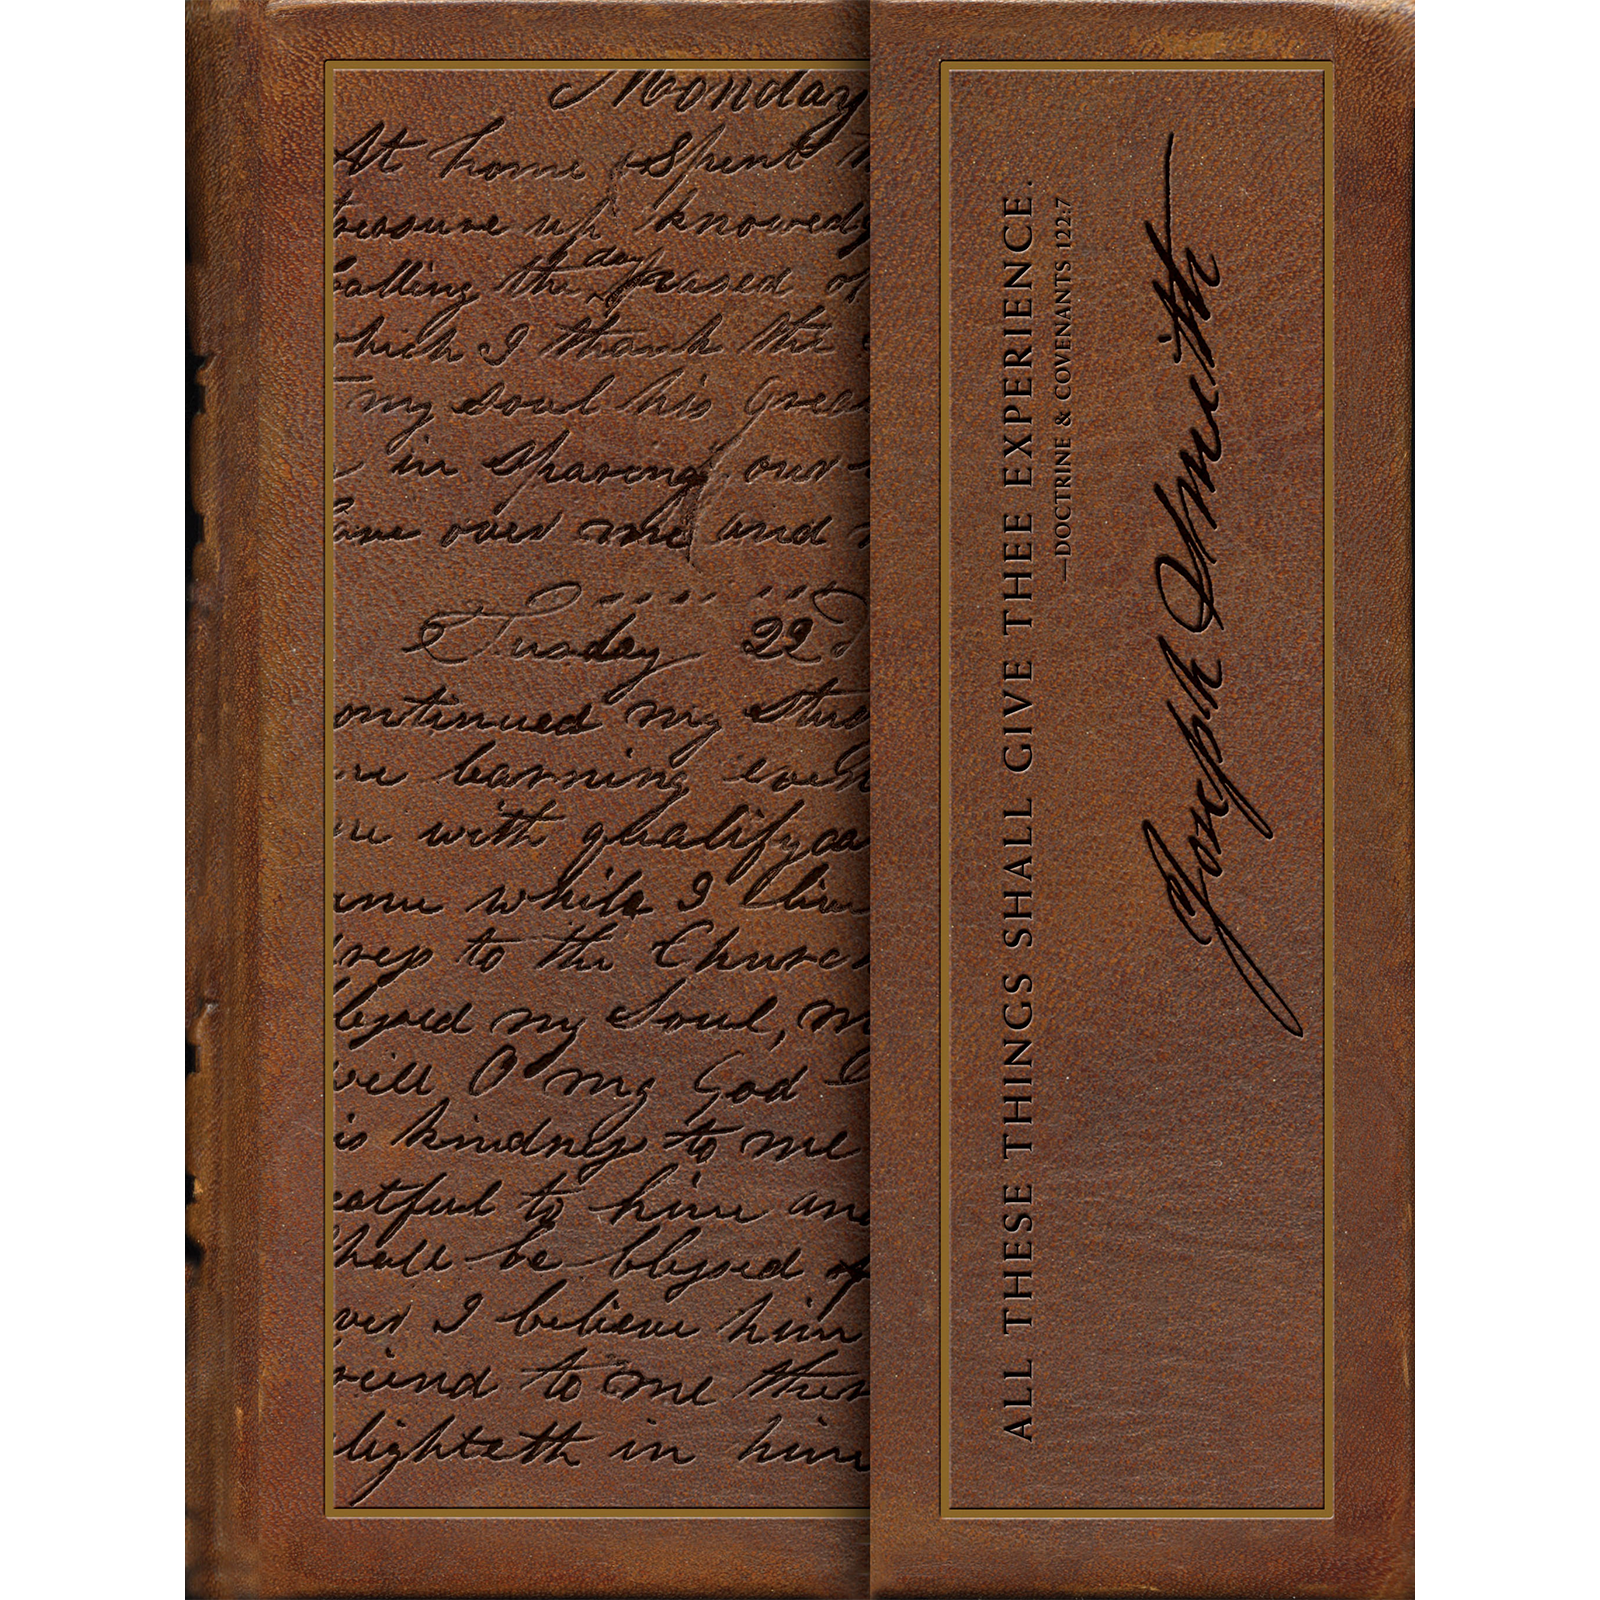 Monday
At home & spent
treasure up knowedg
day
calling the pased of
which I thank the
my soul his grea
in sparing our
have over me and
Tusday 22d
ontinued my stud
learning even
with qualifyca
while I live
to the Church
blessed my Soul, m
will O my God I
is kindness to me
eatful to him and
shall be blessed of
ver I believe him
riend to me then
lighteth in him
ALL THESE THINGS SHALL GIVE THEE EXPERIENCE.
—DOCTRINE & COVENANTS 122:7
Joseph Smith